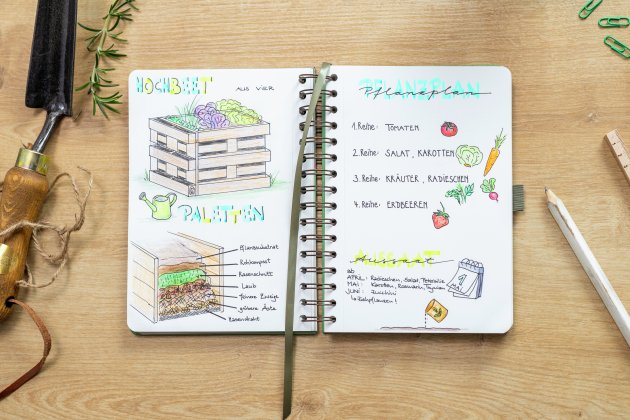 HOCHBEET
AUS VIER
PALETTEN
Pflanzsubstrat
Rohkompost
Rasenschnitt
Laub
feinere Zweige
gröbere Äste
Hasendraht
PFLANZPLAN
Pflanzplan
1. Reihe: TOMATEN
2. Reihe: SALAT, KAROTTEN
3. Reihe: KRÄUTER, RADIESCHEN
4. Reihe: ERDBEEREN
AUSSAAT
Aussaat
ab
APRIL: Radieschen, Salat, Petersilie
MAI: Karotten, Rosmarin, Thymian
JUNI: Zucchini
1
MAI